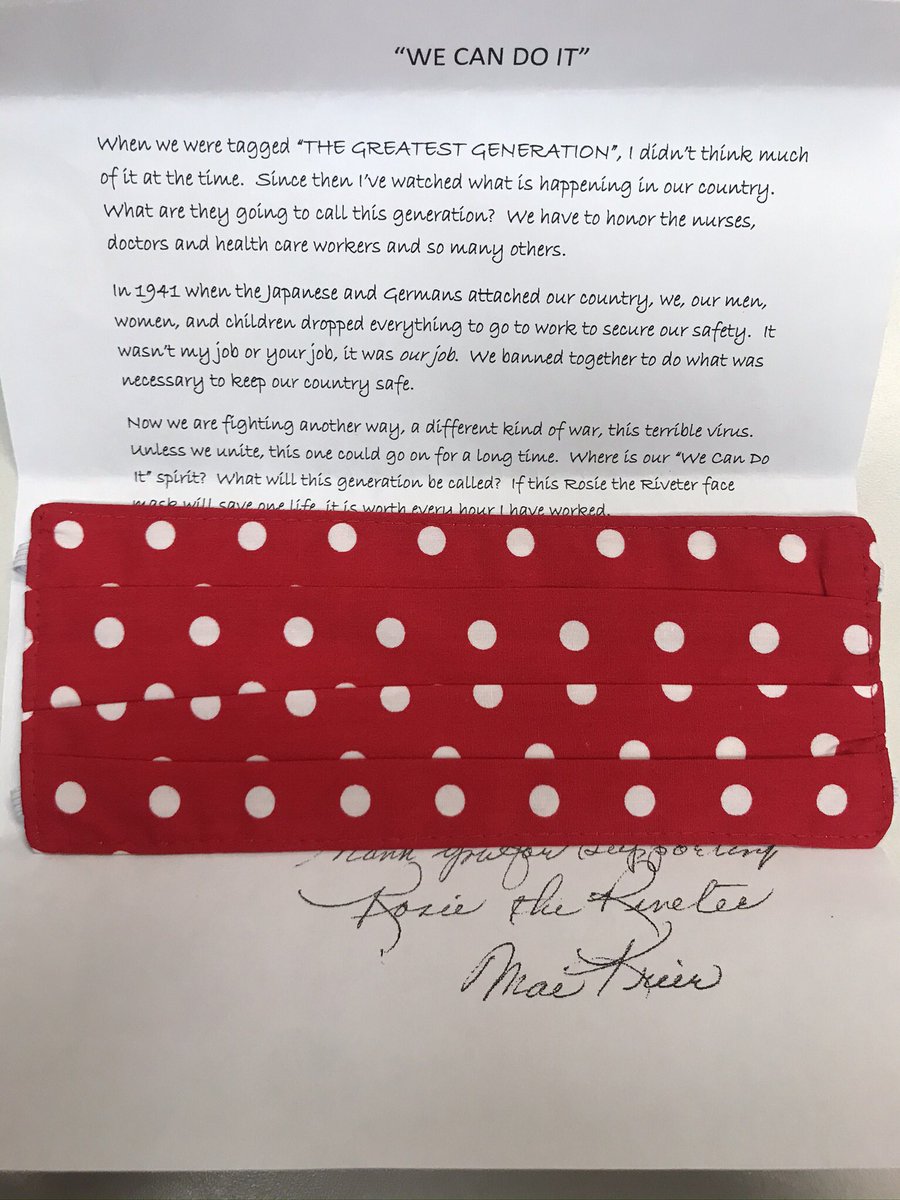 “WE CAN DO IT”
When we were tagged “THE GREATEST GENERATION”, I didn’t think much
of it at the time. Since then I’ve watched what is happening in our country.
What are they going to call this generation? We have to honor the nurses,
doctors and health care workers and so many others.
In 1941 when the Japanese and Germans attached our country, we, our men,
women, and children dropped everything to go to work to secure our safety. It
wasn’t my job or your job, it was our job. We banned together to do what was
necessary to keep our country safe.
Now we are fighting another way, a different kind of war, this terrible virus.
Unless we unite, this one could go on for a long time. Where is our “We Can Do
It” spirit? What will this generation be called? If this Rosie the Riveter face
mask will save one life, it is worth every hour I have worked.
Thank you for supporting
Rosie the Riveter
Mae Krier